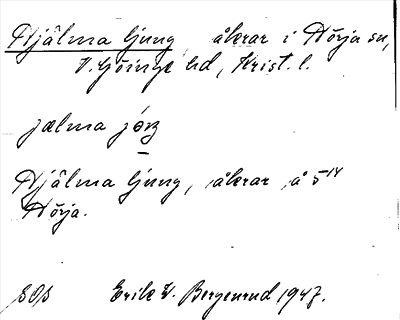 Hjälma ljung, åkrar i Hörja sn,
V. Göinge hd, Krist. l.
jælma
Hjälma ljung, åkrar å 5¹⁴
Hörja.
Erik W. Bergenrud 1947.